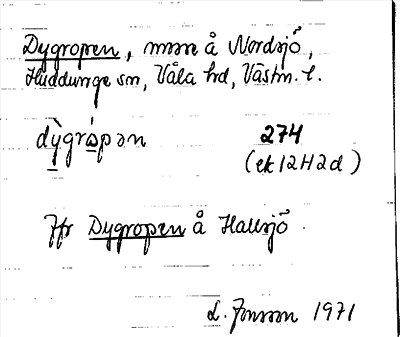 Dygropen, mosse å Nordsjö,
Huddunge sn, Våla hd, Västm. l.
dỳgrópən 274
(ek 12H2d)
Jfr Dygropen å Hallsjö.
L. Jonsson 1971